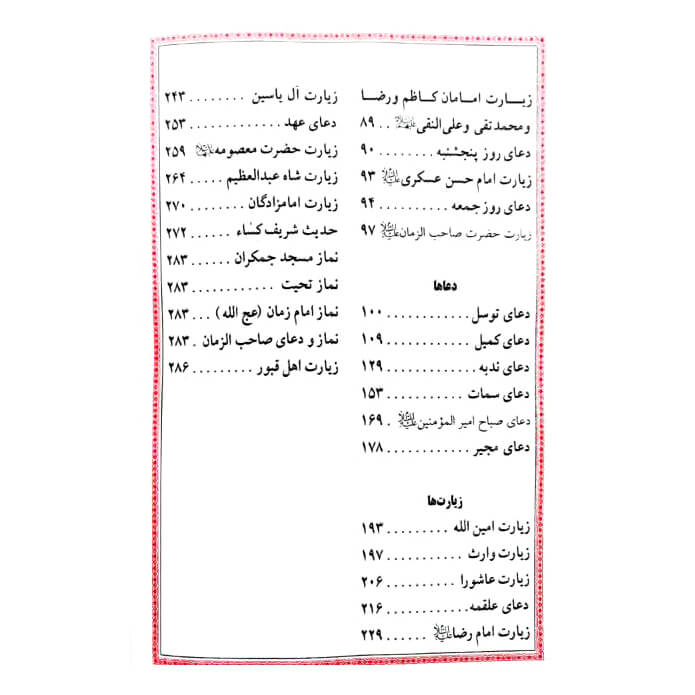 زیـارت امـامان کـاظم و رضـا
و محمد تقی و علی النقی علیهم‌السلام . . ۸۹
دعای روز پنجشنبه . . . . . . . . ۹۰
زیارت امام حسن عسکری علیه‌السلام ۹۳
دعای روز جمعه . . . . . . . . . . ۹۴
زیارت حضرت صاحب الزمان علیه‌السلام ۹۷
دعاها
دعای توسل . . . . . . . . . . . . ۱۰۰
دعای کمیل . . . . . . . . . . . . ۱۰۹
دعای ندبه . . . . . . . . . . . . ۱۲۹
دعای سمات . . . . . . . . . . . ۱۵۳
دعای صباح امیر المؤمنین علیه‌السلام . ۱۶۹
دعای مجیر . . . . . . . . . . . . ۱۷۸
زیارت‌ها
زیارت امین الله . . . . . . . . . ۱۹۳
زیارت وارث . . . . . . . . . . . ۱۹۷
زیارت عاشورا . . . . . . . . . . ۲۰۶
دعای علقمه . . . . . . . . . . . . ۲۱۶
زیارت امام رضا علیه‌السلام . . . . . . ۲۲۹
زیارت آل یاسین . . . . . . . . ۲۴۳
دعای عهد . . . . . . . . . . . . . ۲۵۳
زیارت حضرت معصومه علیهاالسلام ۲۵۹
زیارت شاه عبدالعظیم . . . . . ۲۶۴
زیارت امامزادگان . . . . . . . . ۲۷۰
حدیث شریف کساء . . . . . . ۲۷۲
نماز مسجد جمکران . . . . . . ۲۸۳
نماز تحیت . . . . . . . . . . . . ۲۸۳
نماز امام زمان (عج الله) . . . ۲۸۳
نماز و دعای صاحب الزمان . ۲۸۳
زیارت اهل قبور . . . . . . . . . ۲۸۶